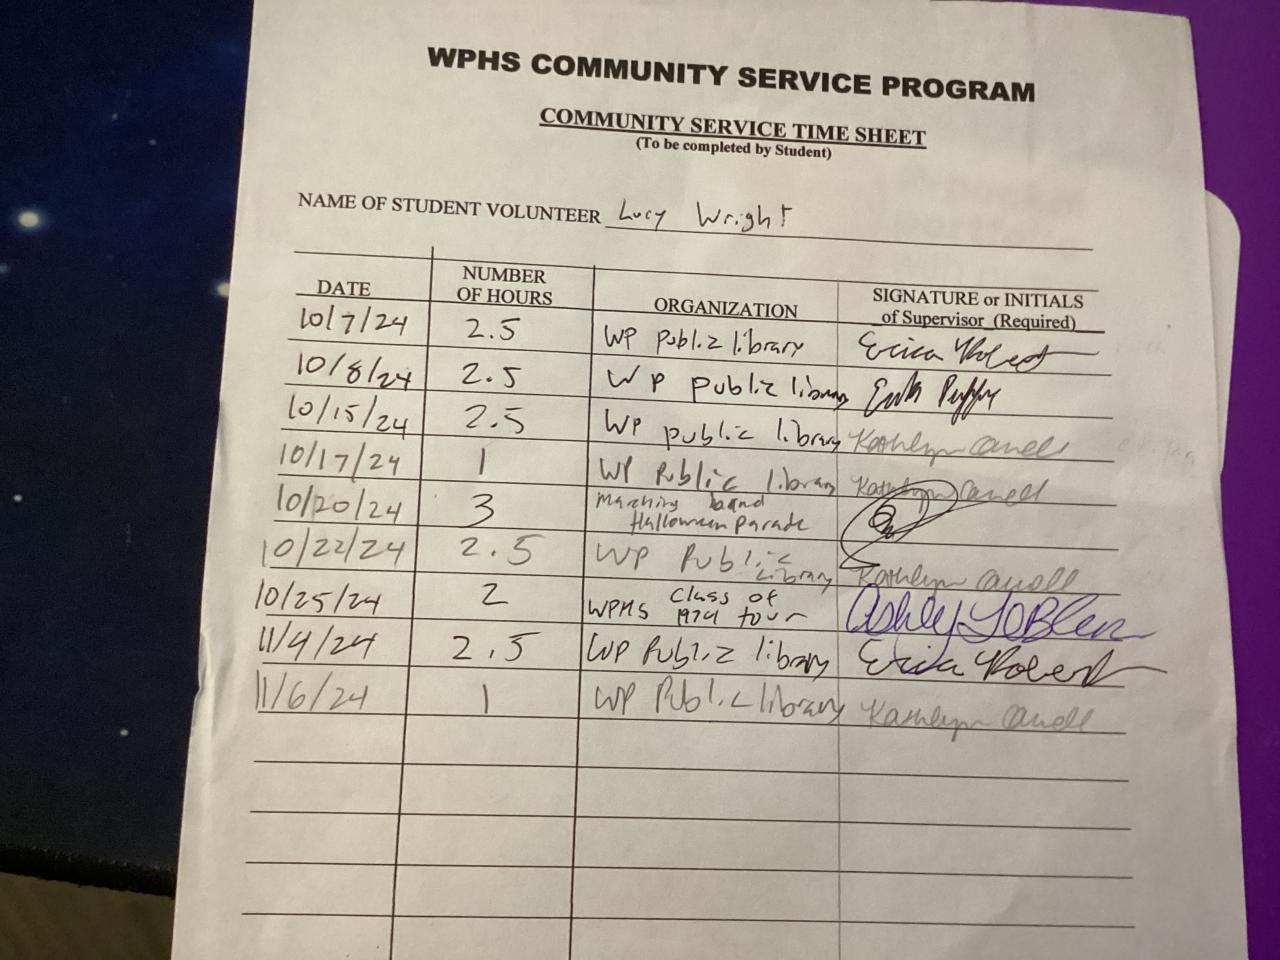 WPHS COMMUNITY SERVICE PROGRAM
COMMUNITY SERVICE TIME SHEET
(To be completed by Student)
NAME OF STUDENT VOLUNTEER Lucy Wright
DATE NUMBER OF HOURS ORGANIZATION SIGNATURE or INITIALS of Supervisor (Required)
10/7/24 2.5 WP Public library Erica Robert
10/8/24 2.5 WP public library
10/15/24 2.5 WP public library Kathlyn Carroll
10/17/24 1 WP Public library Kathlyn Carroll
10/20/24 3 Marching band Halloween parade
10/22/24 2.5 WP Public Library Kathlyn Carroll
10/25/24 2 WPHS Class of 1974 tour Ashley
11/4/24 2.5 WP Public library Erica Robert
11/6/24 1 WP Public library Kathlyn Carroll